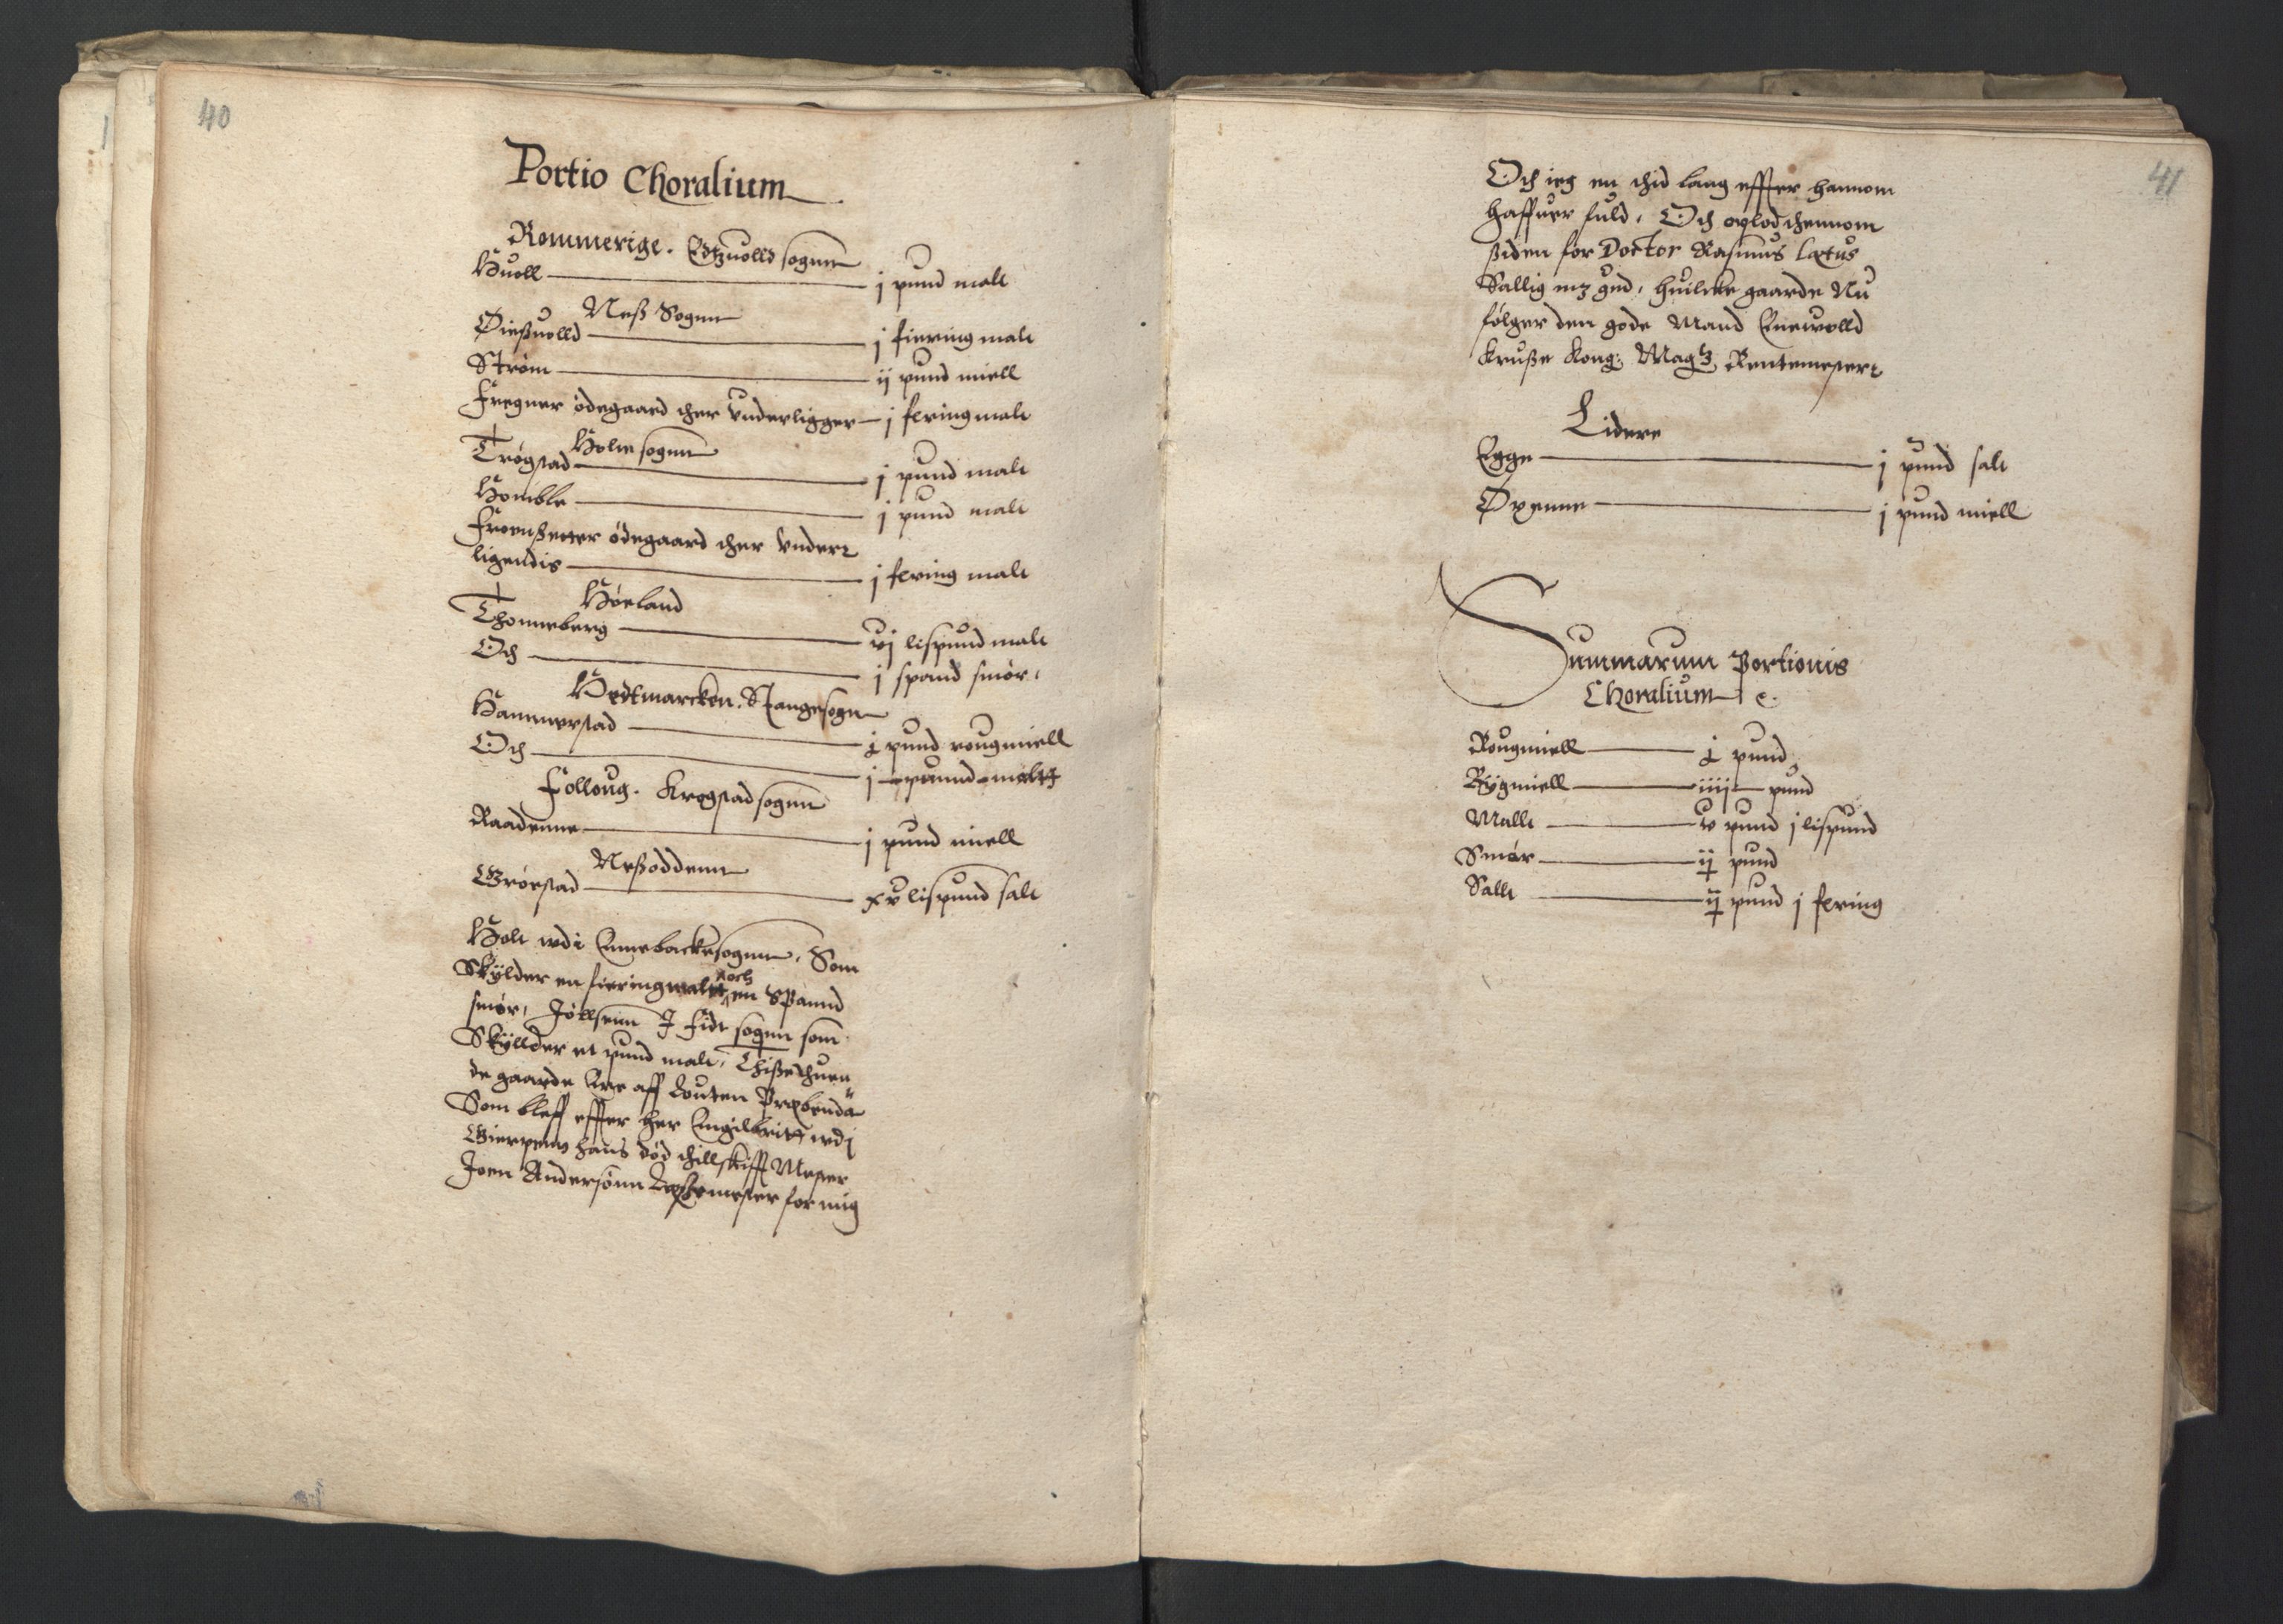 40
Portio Choralium
Rommerige. Edtzuolld sognn
Huoll — j pund malt
Neß Sognn
Øießuolld — j fiering malt
Strøm — ij pund miell
Fregner ødegaard ther vnderligger — j fering malt
Holte sognn
Trøgstad — j pund malt
Homble — j pund malt
Froenßetter ødegaard ther vnder
ligendis — j fering malt
Høeland
Thonneberg — vj lispund malt
Och — j spand smør.
Hedtmarcken. Stange sogn
Hammerstad — j pund rougmiell
Och — j pund maltt
Folloug. Krogstad sognn
Raadenne — j pund miell
Neßoddenn
Grøestad — xv lispund salt
Holt wdi Ennebacke sognn, Som
Skylder en fiering maltt och en Spannd
smør, Jøllsenn J Fidt sognn som
Skyllder et pund malt, Thiße thuen
de gaarde Ere aff Louten Præbenda
Som bleff effter her Engilbritt wdj
Gierpenn hans død thillskifft Mester
Joen Andersønn Leßemester for mig
41
Och ieg en thid lang effter hannom
haffuer fuld, Och oplod thennom
ßiden for Doctor Rasmus Lætus
Sallig mz gud, huilcke gaarde Nu
følger den gode Mand Enewolld
Kruße Kong: Matz Rentemester
Lidere
Egge — j pund salt
Øxenne — j pund miell
Summarum Portionis
Choralium e.
Rougmiell — j pund
Rygmiell — iiij pund
Mallt — v pund j lispund
Smør — ij pund
Sallt — ij pund j fering